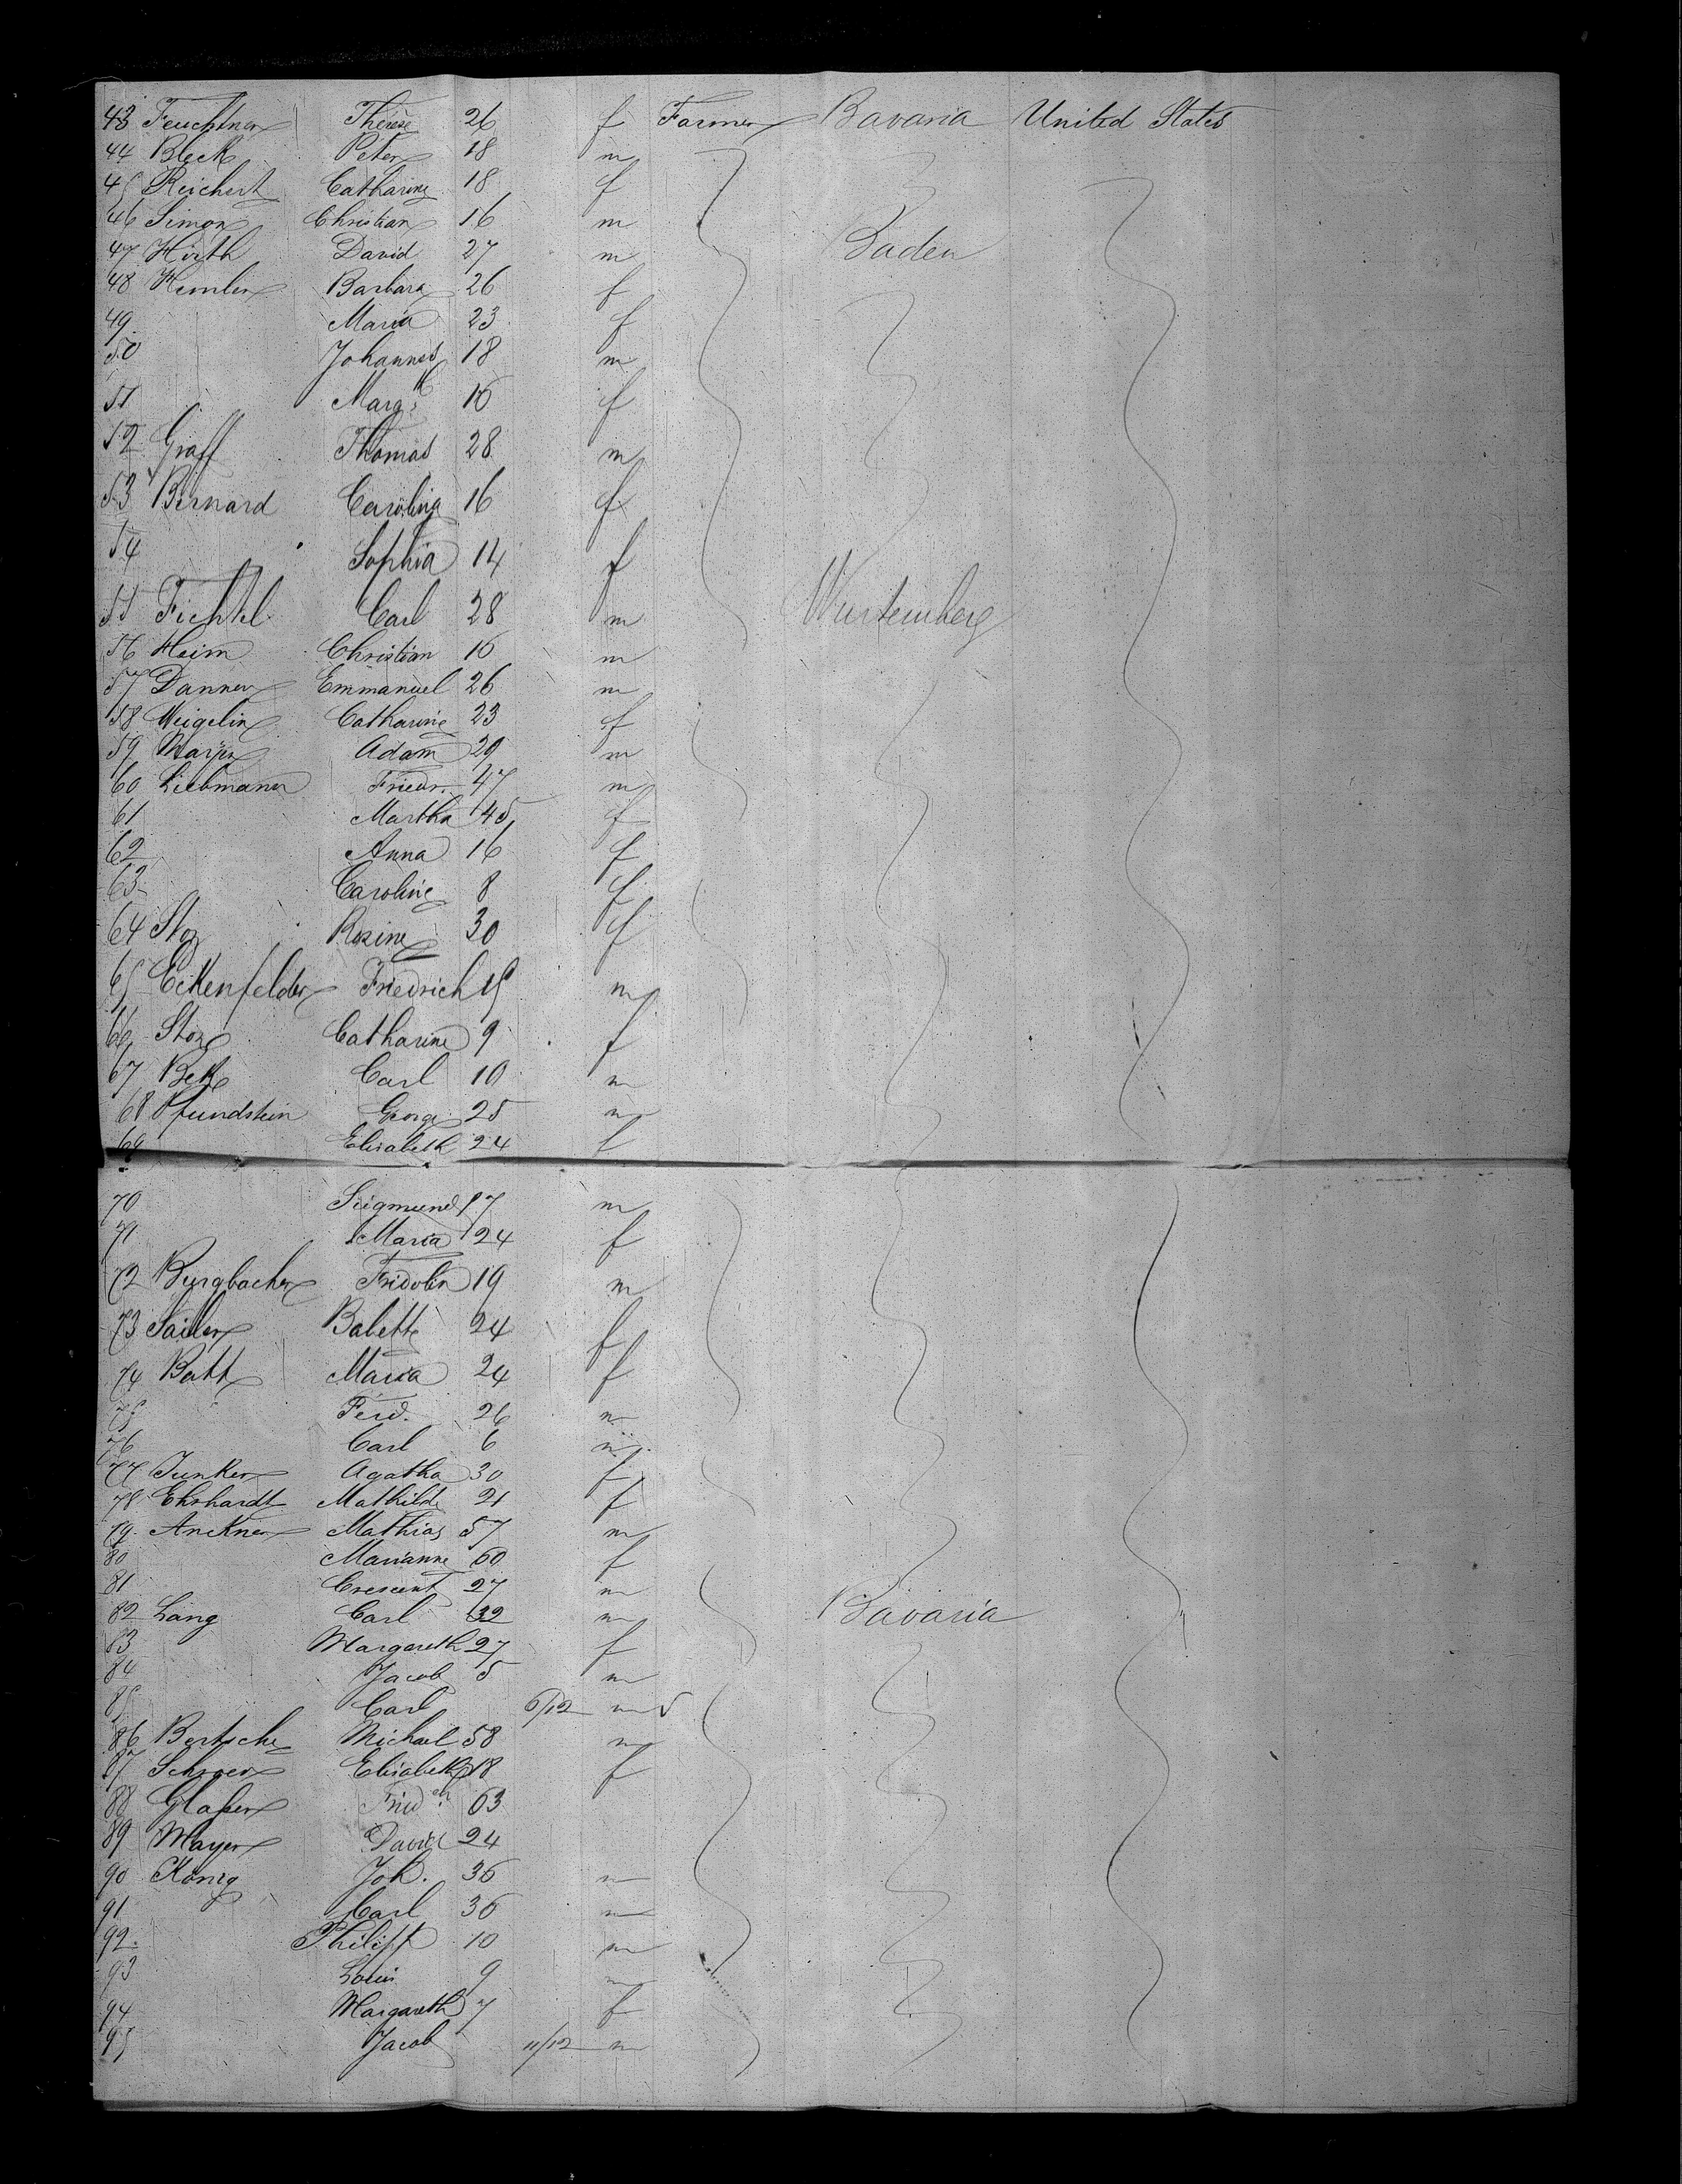 43 Feuchtner Therese 26 f Farmer Bavaria United States
44 Bleck Peter 18 m
45 Reichert Catharine 18 f
46 Simon Christian 16 m
47 Hirth David 27 m Baden
48 Hemler Barbara 26 f
49 Maria 23 f
50 Johannes 18 m
51 Marg. 16 f
52 Graff Thomas 28 m
53 Bernard Carolina 16 f
54 Sophia 14 f
55 Fichtel Carl 28 m Wurtemberg
56 Heim Christian 16 m
57 Danner Emmanuel 26 m
58 Weigelin Catharine 23 f
59 Adam 29 m
60 Liebmann Friedr. 47 m
61 Martha 45 f
62 Anna 16 f
63 Caroline 8 f
64 Stoz Rosine 30 f
65 Eckenfelder Friedrich 15 m
66 Stoz Catharine 9 f
67 Bek Carl 10 m
68 Pfundstein George 25 m
69 Elisabeth 24 f
70 Siegmund 17 m
71 Maria 24 f
72 Burgbacher Fridolin 19 m
73 Sailer Babette 24 f
74 Batt Maria 24 f
75 Ferd. 26 m
76 Carl 6 m
77 Junker Agatha 30 f
78 Ehrhardt Mathilde 21 f
79 Anckner Mathias 57 m
80 Marianne 60 f
81 Crescent 27 m
82 Lang Carl 32 m Bavaria
83 Margareth 27 f
84 Jacob 5 m
85 Carl 6/12 m
86 Bertsche Michael 58 m
87 Schroer Elisabeth 18 f
88 Glaßer Fried.ch 63
89 Mayer David 24
90 König Joh. 36 m
91 Carl 36 m
92. Philipp 10 m
93 Louis 9 m
94 Margareth 7 f
95 Jacob 11/12 m